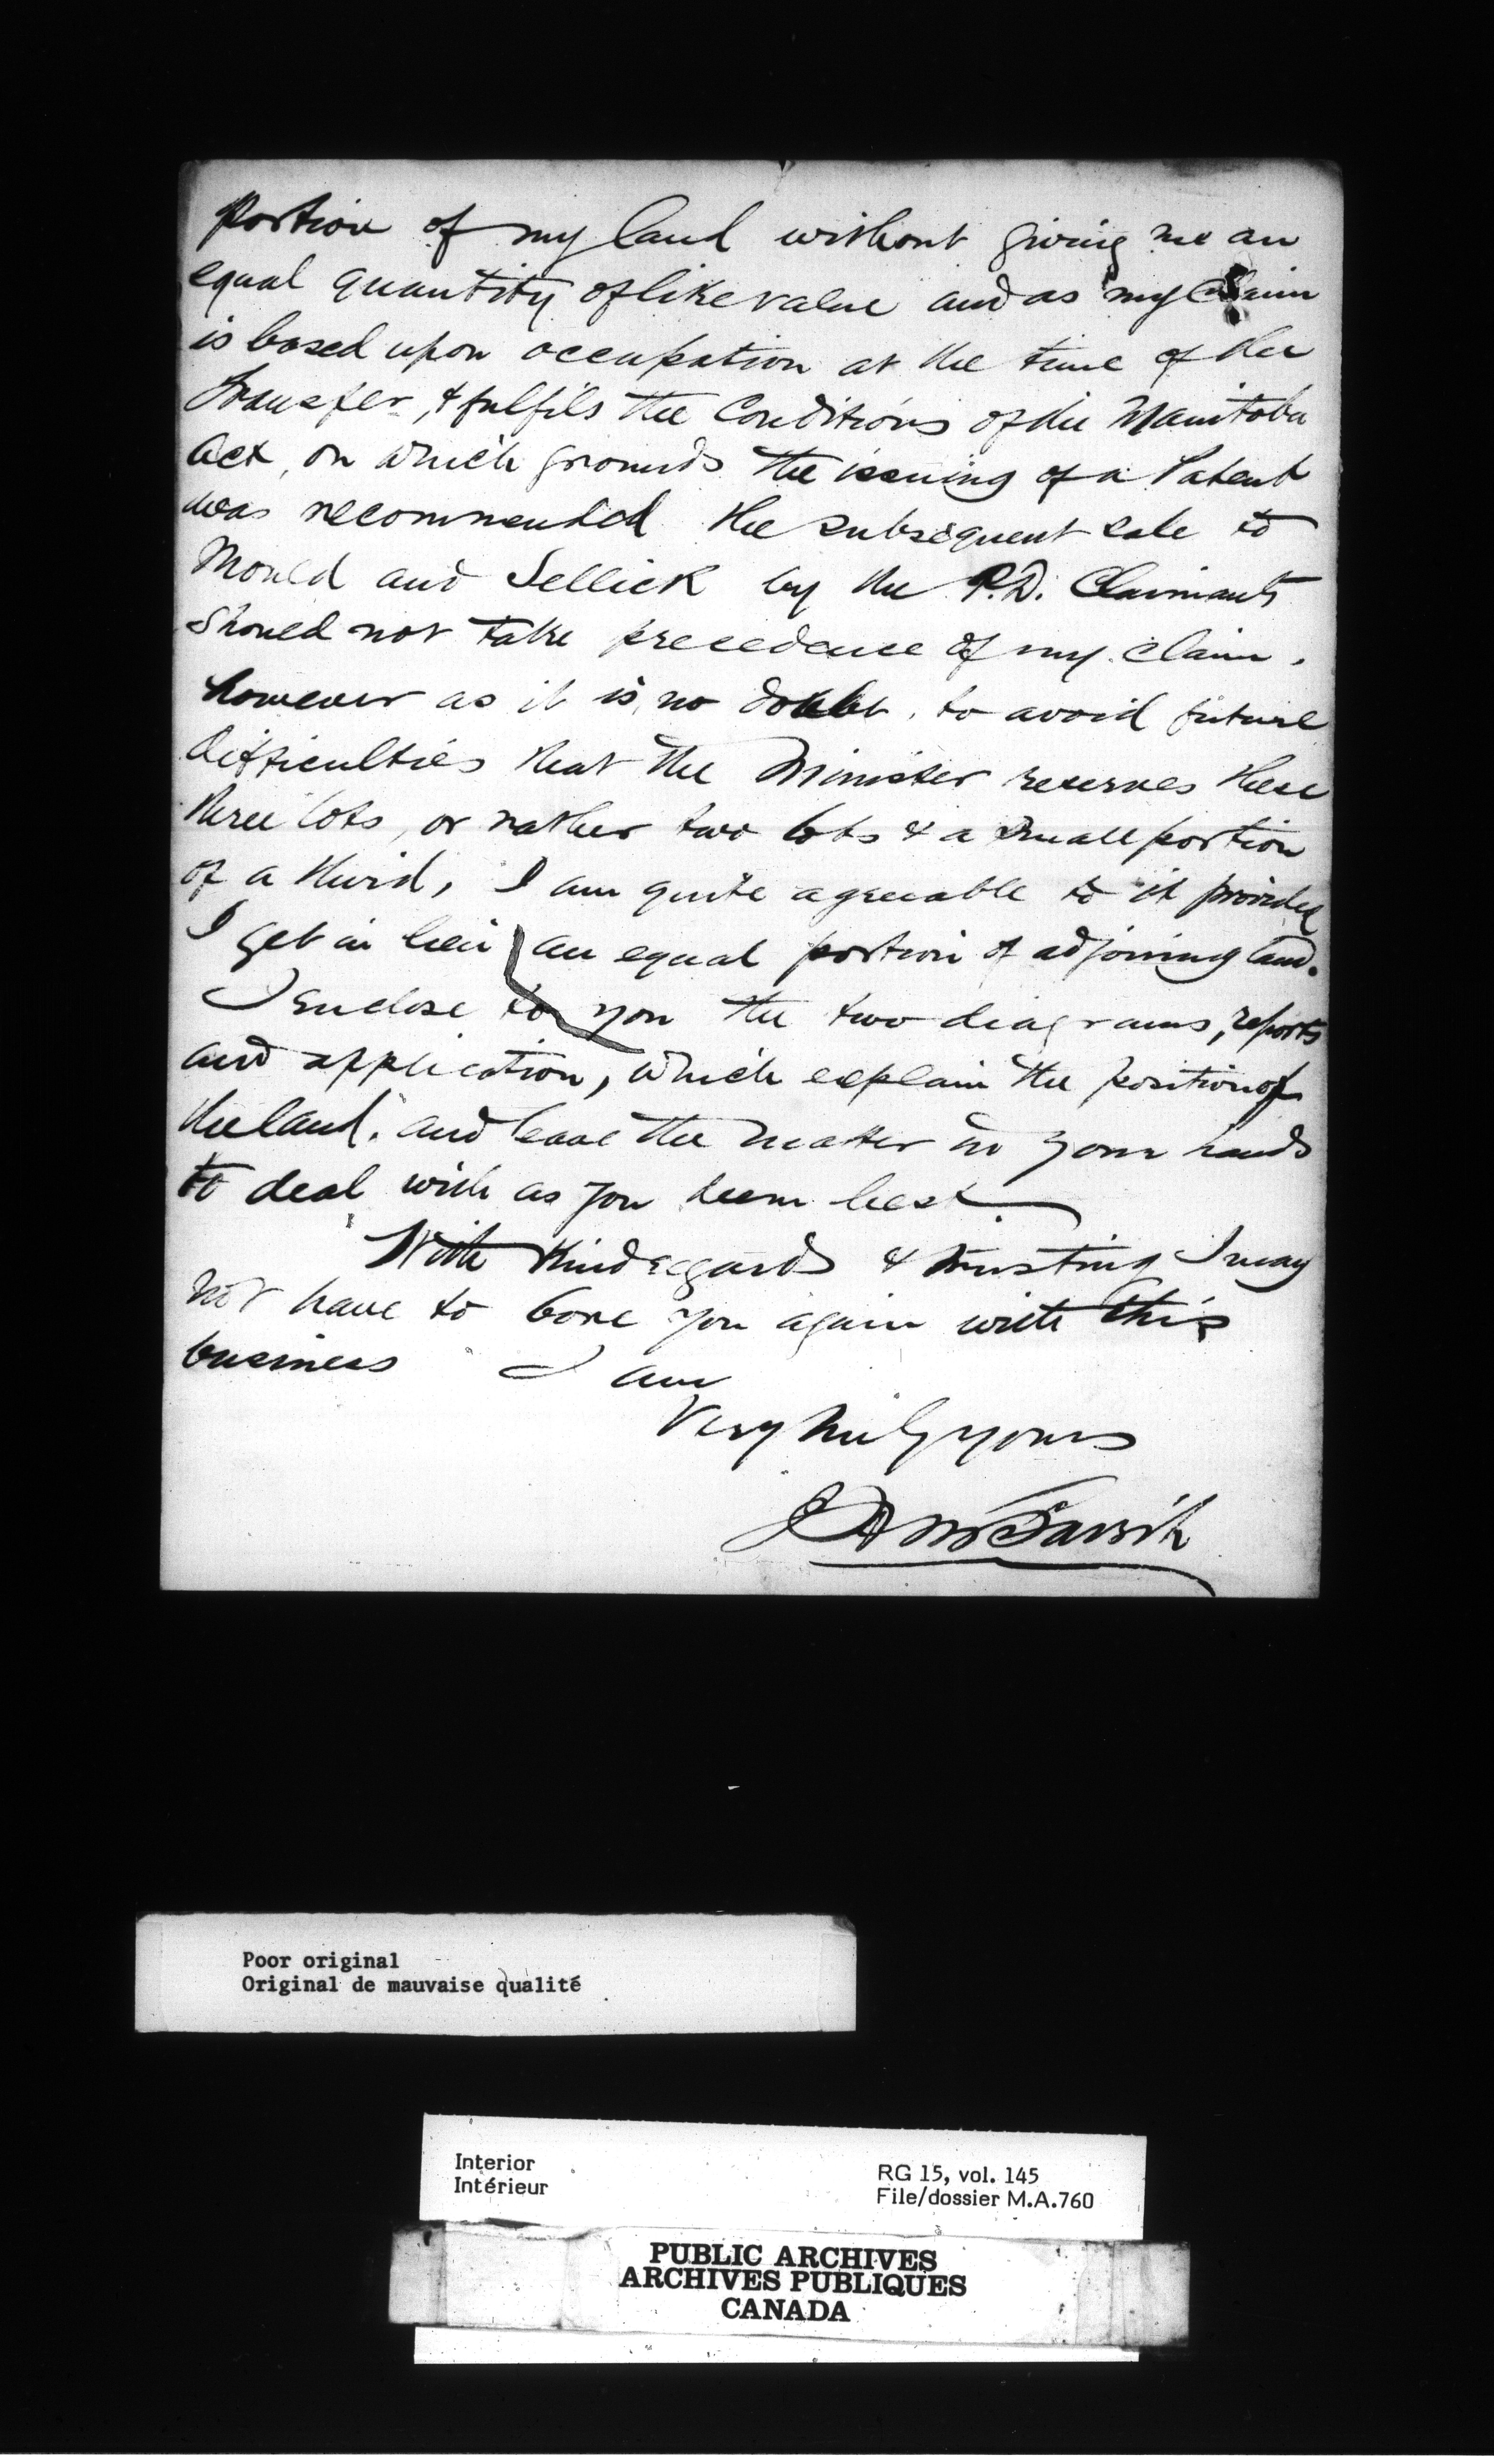 Portion of my land without giving me an
equal quantity of like value and as my Claim
is based upon occupation at the time of the
transfer, & fulfils the Conditions of the Manitoba
Act, on which grounds the issuing of a Patent
was recommended the subsequent sale to
Mould and Sellick by the P.D. Claimants
should not take precedence of my claim.
however as it is no doubt, to avoid future
difficulties that the Minister reserves these
three lots, or rather two lots & a small portion
of a third, I am quite agreeable to it provided
I get in lieu an equal portion of adjoining land.
I Enclose to you the two diagrams, reports
and application, which explain the position of
the land. and leave the matter in your hands
to deal with as you deem best.
With Kind regards & trusting I may
not have to bore you again with this
business I am
Very truly yours
Poor original
Original de mauvaise qualité
Interior
Intérieur
RG 15, vol. 145
File/dossier M.A.760
PUBLIC ARCHIVES
ARCHIVES PUBLIQUES
CANADA